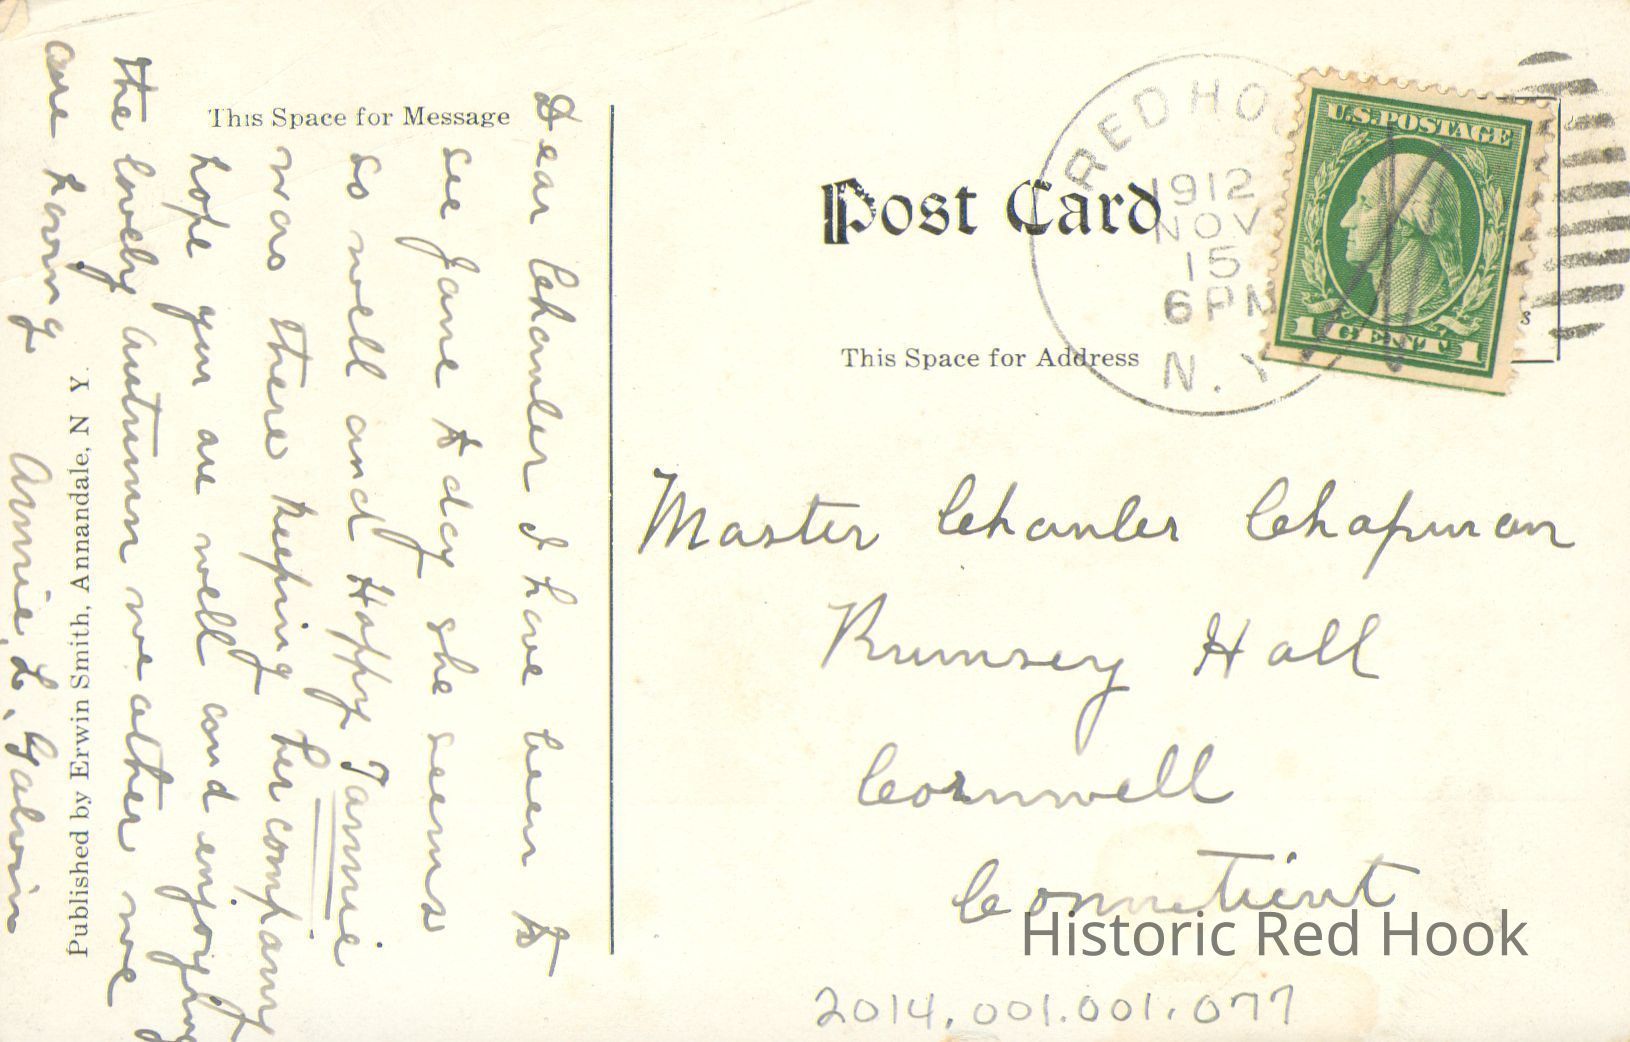 This Space for Message
Dear Chanler I have been to
see Jane to day she seems
so well and Happy Tannie
was there keeping her company
hope you are well and enjoying
the lovely autumn weather we
are having
Annie. L. Galvin
Published by Erwin Smith, Annandale, N Y.
Post Card
This Space for Address
RED HOO
1912
NOV
15
6 PM
N. Y
U.S. POSTAGE
1 CENT 1
Master Chanler Chapman
Rumsey Hall
Cornwell
Conneticut
Historic Red Hook
2014.001.001.077